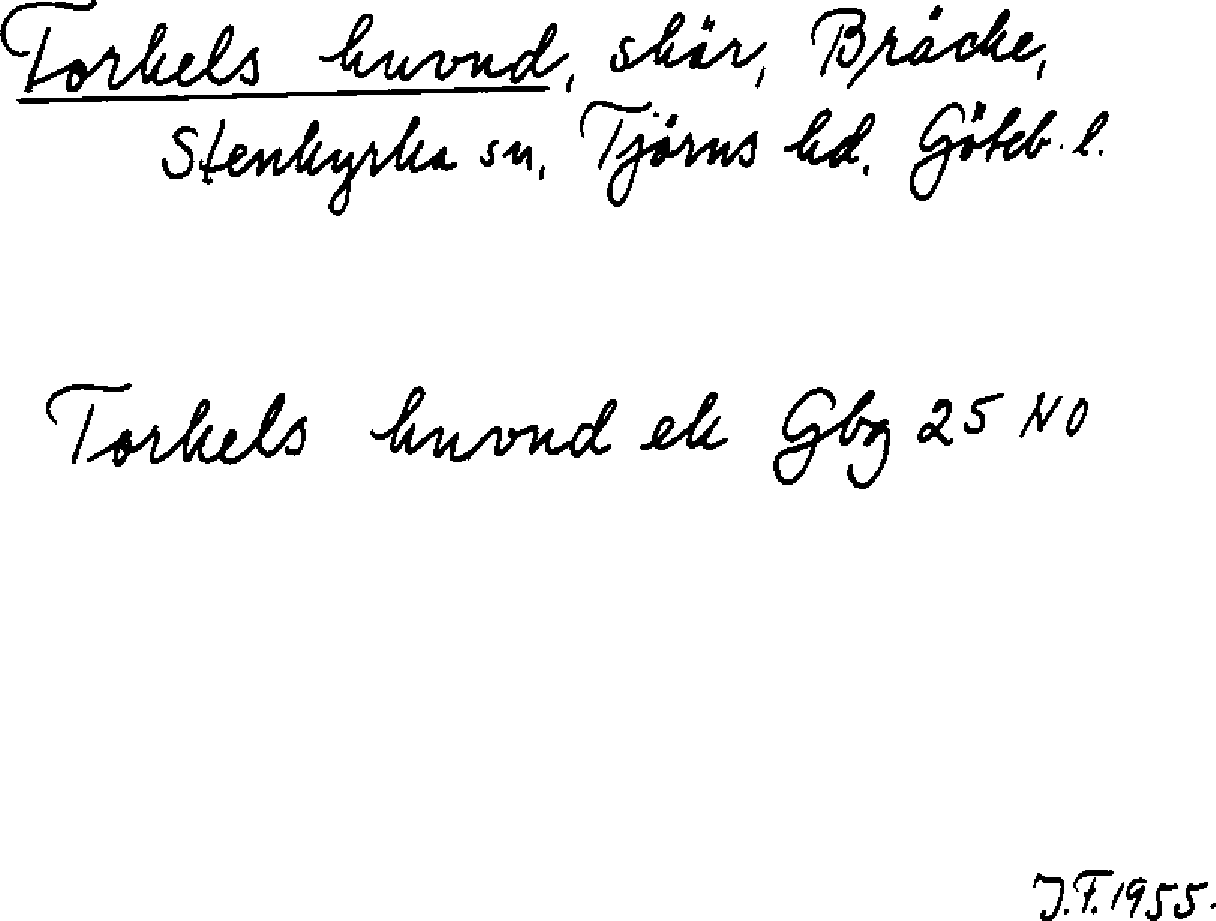 Torkels huvud, skär, Bräcke,
Stenkyrka sn, Tjörns hd. Göteb. l.
Torkels huvud ek Gbg 25 NO
J.F. 1955.